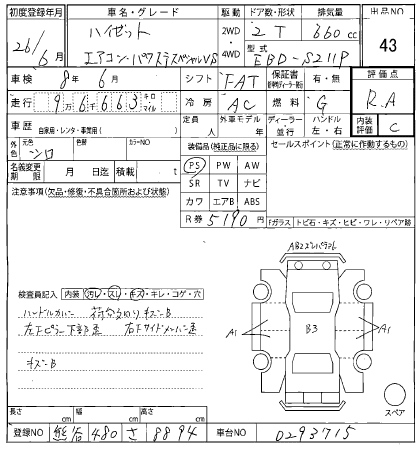 初度登録年月 車名・グレード 駆動 ドア数・形状 排気量 出品NO
26/6月 ハイゼット 2WD・4WD 2 T 660 cc 43
エアコン・パワステスペシャルVS 2WD・4WD 型式 EBD-S211P
車検 8年 6月 シフト FAT 保証書 有・無 評価点
走行 9万6千663 キロ マイル 冷房 AC 燃料 G R.A
車歴 自家用・レンタ・事業用( ) 定員 人 外車モデル 年 ディーラー 並行 ハンドル 左・右 内装評価 C
外色 元色 シロ 色替 カラーNO 装備品(純正品に限る) セールスポイント(正常に作動するもの)
名義変更期限 月 日迄 積載 t PS PW AW
注意事項(欠品・修復・不具合箇所および状態) SR TV ナビ
カワ エアB ABS
R券 5190円 Fガラス トビ石・キズ・ヒビ・ワレ・リペア跡
検査員記入 内装 汚レ・スレ・キズ・キレ・コゲ・穴
ハンドルカバー 荷台
キズーB
A1 B3 A1
スペア
長さ cm 幅 cm 高さ cm
登録NO 熊谷 480 さ 8894 車台NO 0293715